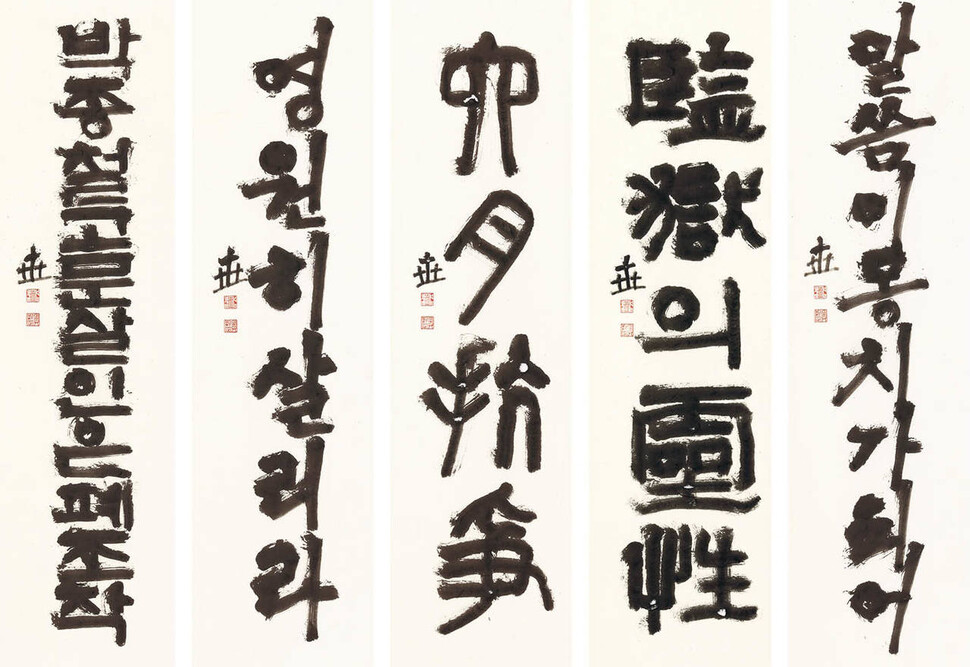 박종철고문살인은폐조작
영원히살리라
六月抗爭
監獄의靈性
말씀이몽치가되어